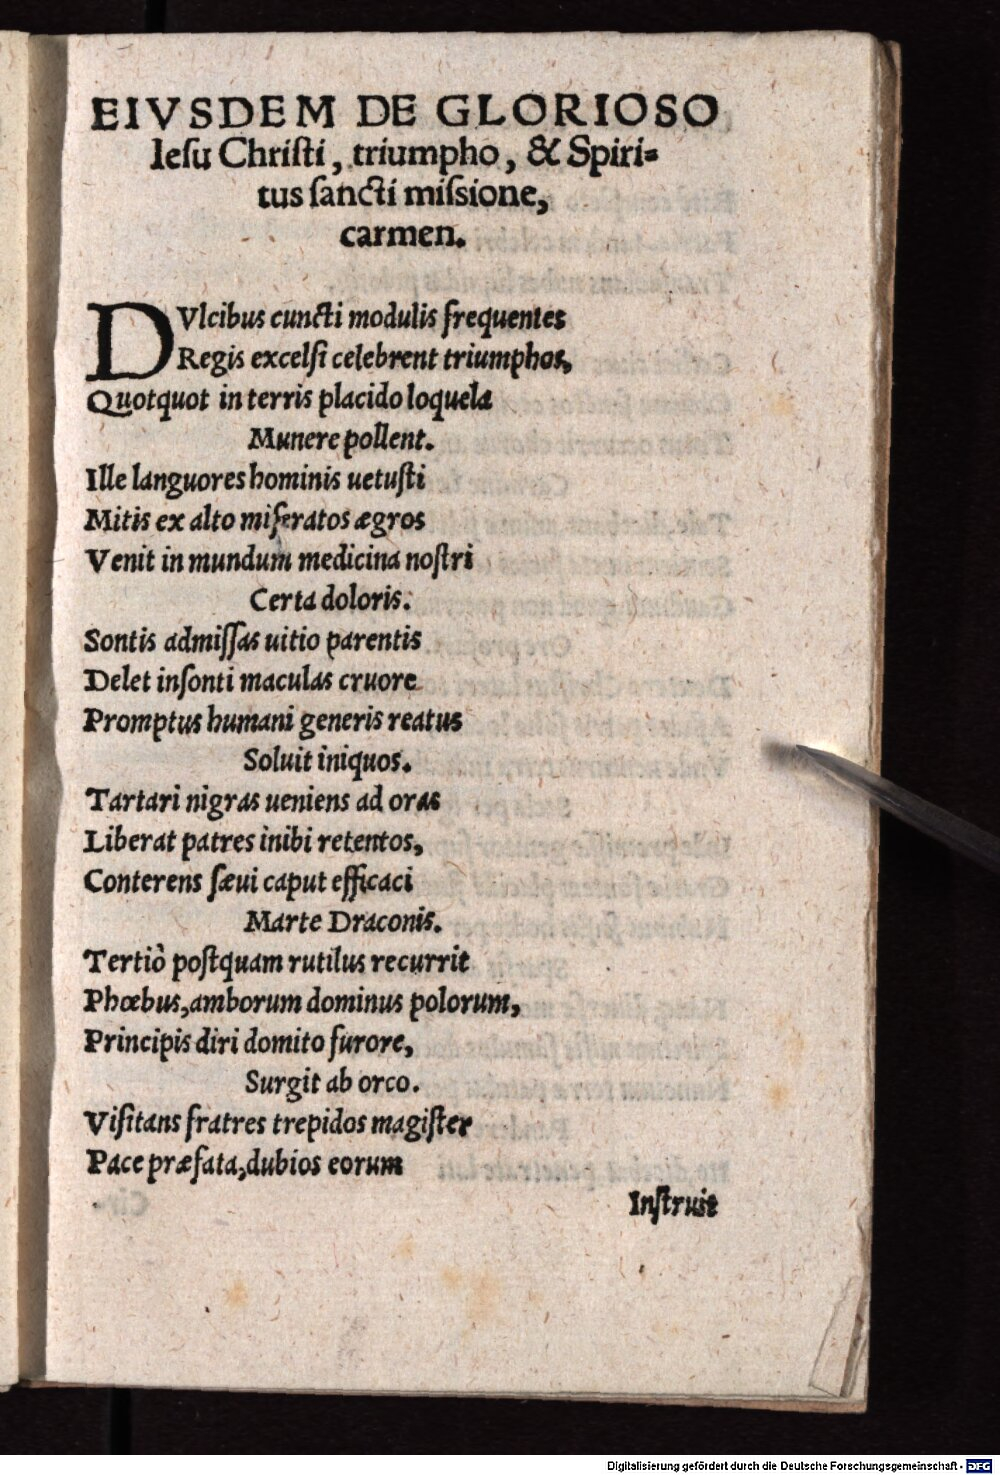 EIVSDEM DE GLORIOSO
Iesu Christi, triumpho, & Spiri=
tus sancti missione,
carmen.
DVlcibus cuncti modulis frequentes
Regis excelsi celebrent triumphos,
Quotquot in terris placido loquela
Munere pollent.
Ille languores hominis uetusti
Mitis ex alto miseratos ægros
Venit in mundum medicina nostri
Certa doloris.
Sontis admissas uitio parentis
Delet insonti maculas cruore
Promptus humani generis reatus
Soluit iniquos.
Tartari nigras ueniens ad oras
Liberat patres inibi retentos,
Conterens sæui caput efficaci
Marte Draconis.
Tertiò postquam rutilus recurrit
Phœbus, amborum dominus polorum,
Principis diri domito furore,
Surgit ab orco.
Visitans fratres trepidos magister
Pace præfata, dubios eorum
Instruit
Digitalisierung gefördert durch die Deutsche Forschungsgemeinschaft - DFG